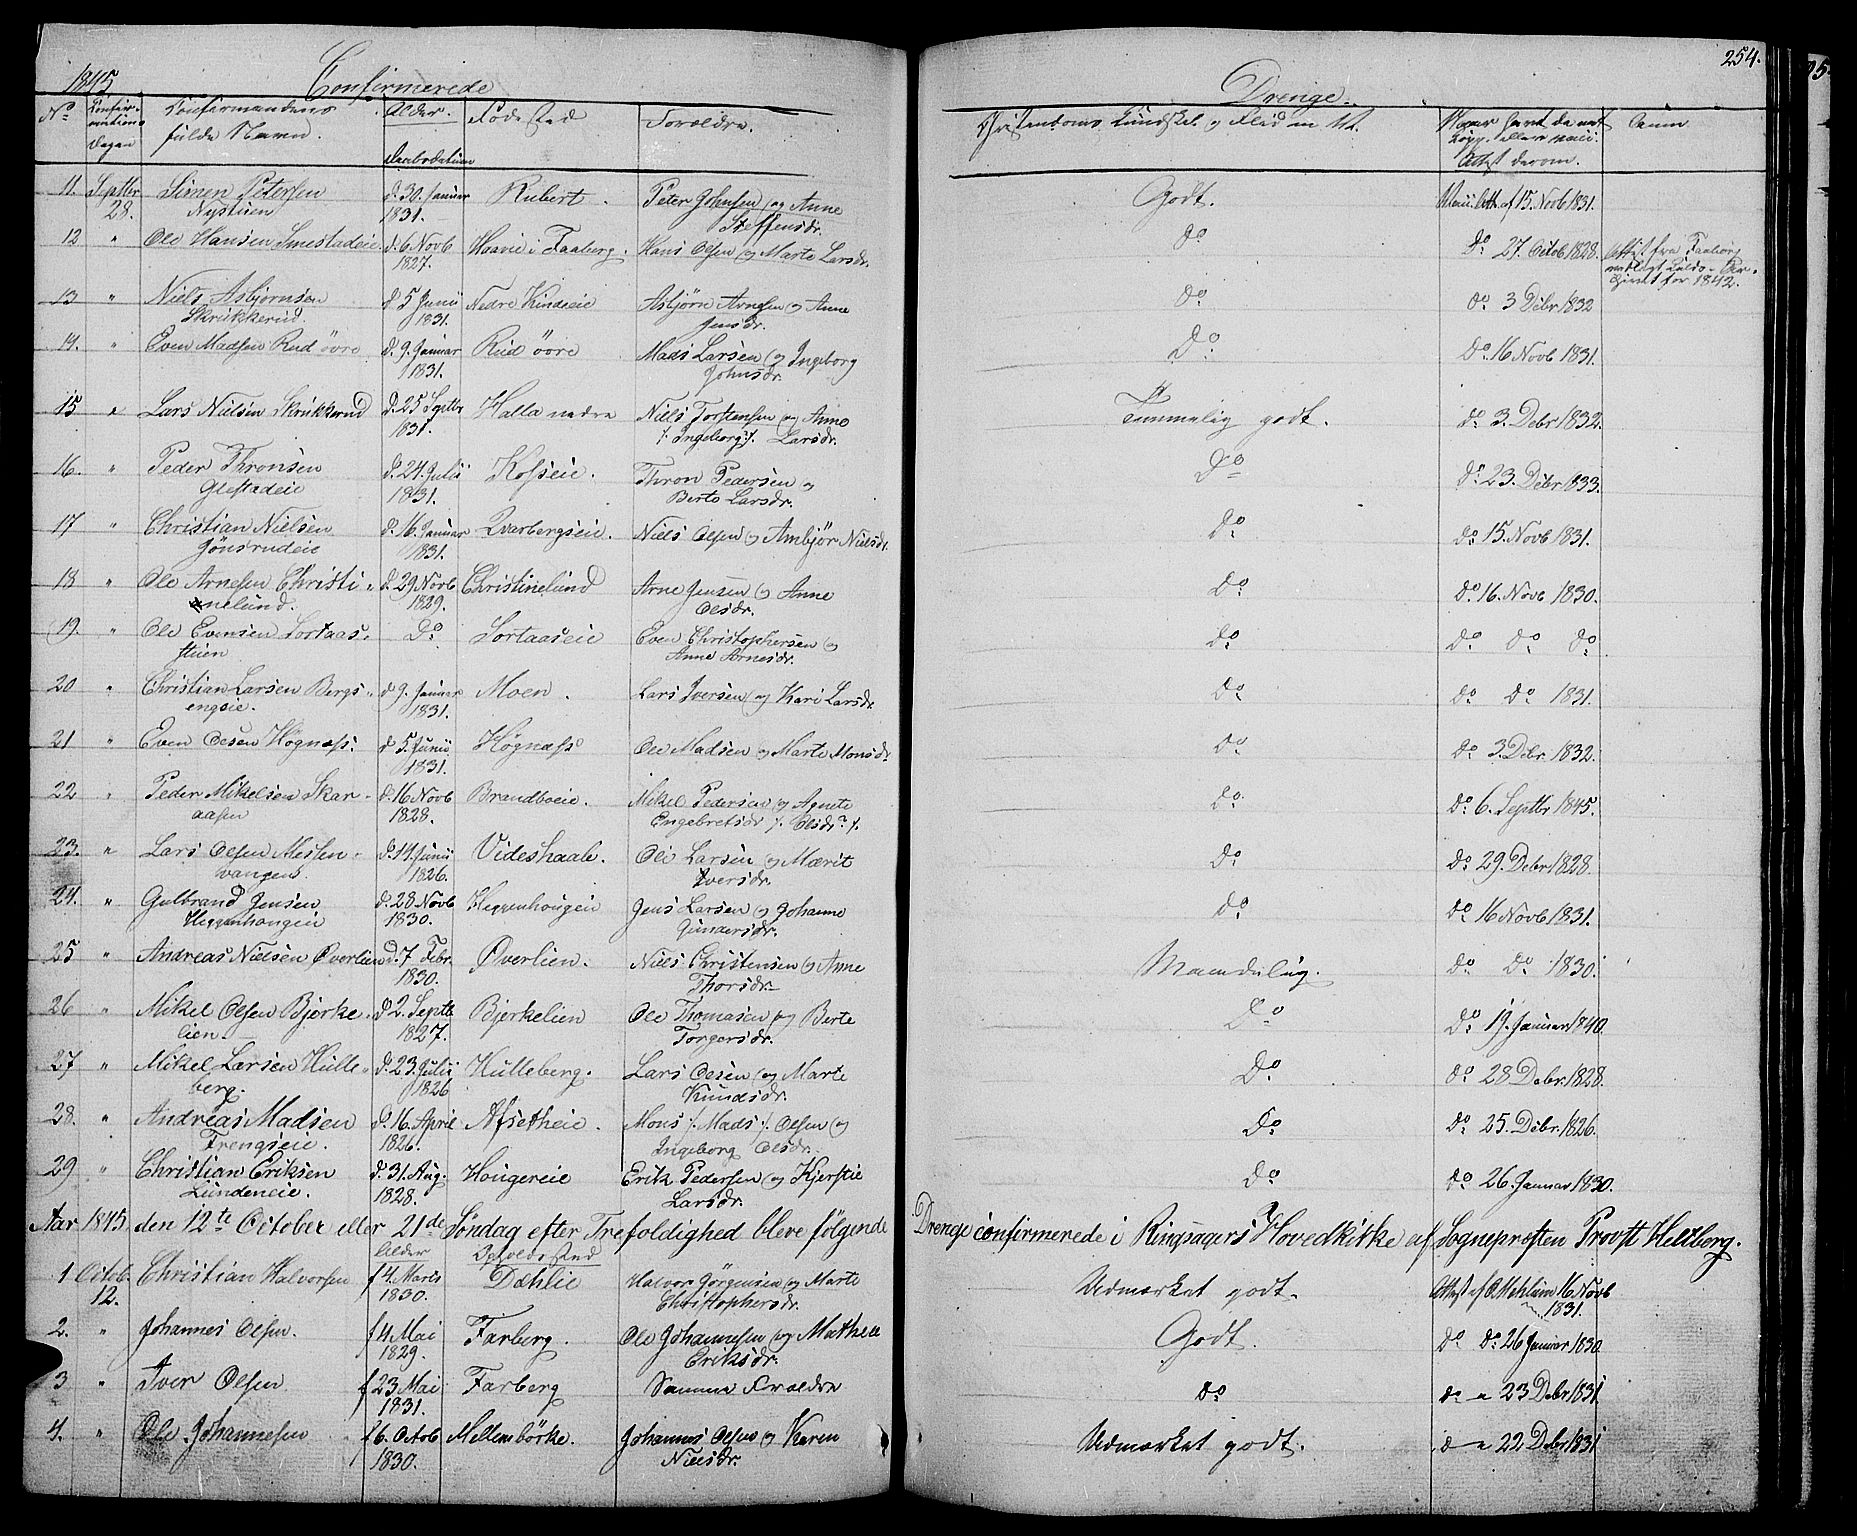 254.
1845.
Confirmerede
Drenge.
No
Confir-
mations
Dagen
Confirmandens
fulde Navn.
Alder.
Daabsdatum
Fødested
Forældre.
Christendoms Kundskab og Flid m. M.
Naar havt de nat.
Kopp. eller vacci.
Attest derom.
11. Septbr 28. Simen Petersen Nystuen d. 30. Januar 1831. Rubert. Peter Johnsen og Anne Steffensdr. Godt. Vacc. Att. af 15. Novb 1831.
12 " Ole Hansen Smestadeie d. 6 Novb 1827. Haave i Faaberg. Hans Olsen og Marte Larsdr. do do 27. Octob 1828. Attest fra Faaberg
for 1842.
13 " Niels Asbjørnsen Skrukkerud d. 5 Junii 1831. Nedre Kindseie Asbjørn Arnesen og Anne Jensdr. do do 3 Debr 1832
14. " Even Madsen Rud øvre d. 9. Januar 1831. Rud øvre Mads Larsen og Ingeborg Johnsdr. Do. Do. 16 Novb 1831.
15 " Lars Nielsen Skrukkerud d. 25 Septbr 1831. Halla nedre Niels Torstensen og Anne /: Ingeborg :/ Larsdr. Temmelig godt. do 3. Debr 1832.
16. " Peder Thronsen Glestadeie d. 24. Julii 1831. Kofseie. Thron Pedersen og Berte Larsdr. Do do 23. Debr 1833.
17 " Christian Nielsen Gönsrudeie d. 16. Januar 1831. Qvarbergseie. Niels Olsen og Ambjør Nielsdr. do do 15. Novb 1831.
18 " Ole Arnesen Christi- nelund. d. 29 Novb 1829. Christinelund Arne Jensen og Anne Olsdr. do do. 16. Novb 1830.
19. " Ole Evensen Sortaas- stuen Do Sortaaseie Even Christophersen og Anne Arnesdr. do do do do
20 " Christian Larsen Bergs- engeie. d 9. Januar 1831. Moen. Lars Iversen og Kari Larsdr. do do do 1831.
21 " Even Olsen Högnæss. d 5. Junii 1831. Högnæss Ole Madsen og Marte Monsdr. do do 3. Debr. 1832.
22 " Peder Mikelsen Skar- aasen d. 16 Novb 1828. Brandboeie. Mikel Pedersen og Agnete Engebretsdr /: Olsdr? :/. do do 6. Septbr 1845.
23. " Lars Olsen Mesten- vangen. d. 14. Junii 1826. Videshaale. Ole Larsen og Marit Iversdr. do do 29. Debr 1828.
24. " Gulbrand Jensen Heggenhougeie d. 28 Novb 1830. Heggenhougeie Jens Larsen og Johanne Gundersdr. do do 16 Novb 1831.
25 " Andreas Nielsen Øverlien d. 7 Febr. 1830. Øverlien. Niels Christensen og Anne Thorsdr. Maadelig. do do 1830.
26 " Mikel Olsen Bjerke- lien. d 2. Septb 1827. Bjerkelien Ole Thomasen og Berte Torgersdr. Do do 19. Januar 1840.
27 " Mikel Larsen Hulle- berg. d. 23. Julii 1826 Hulleberg. Lars Olsen og Marte Knudsdr. Do do 28 Debr. 1828.
28. " Andreas Madsen Frengseie. d. 16. April 1826. Afsetheie. Mons /: Mads :/ Olsen og Ingeborg Olsdr. Do do 25. Debr. 1826.
29 " Christian Eriksen Lundeneie. d. 31. Aug. 1828. Hougereie Erik Pedersen og Kjerstie Larsdr. do do 26. Januar 1830.
Aar 1845 den 12te October eller 21de Söndag efter Trefoldighed bleve fölgende Drenge confirmerede i Ringsagers Hovedkirke af Sognepræsten Provst Hertzberg.
Alder Opholdssted
1 Octob. 12. Christian Halvorsen f 4. Marts 1830. Dæhlie Halvor Jörgensen og Marte Christophersdr. Udmærket godt. Attest af O. Mehlum 16 Novb 1831.
2. " Johannes Olsen. f 4 Mai 1829. Farberg. Ole Johannesen og Mathea Eriksdr. Godt. do do 26 Januar 1830
3 " Iver Olsen f 23 Mai 1831. Farberg Samme Forældre do do " 23 Debr 1831
4. " Ole Johannesen f 6. Octob 1830. Mellembörke. Johannes Olsen og Karen Nielsdr. Udmærket godt. d " 22 Debr 1831